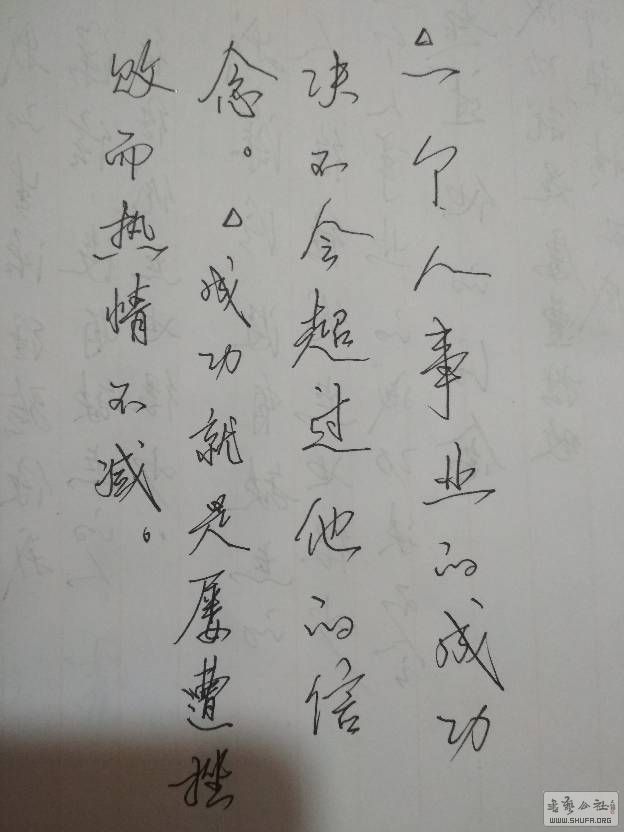 △一个人事业的成功
决不会超过他的信
念。△成功就是屡遭挫
败而热情不减。
WWW.SHUFA.ORG